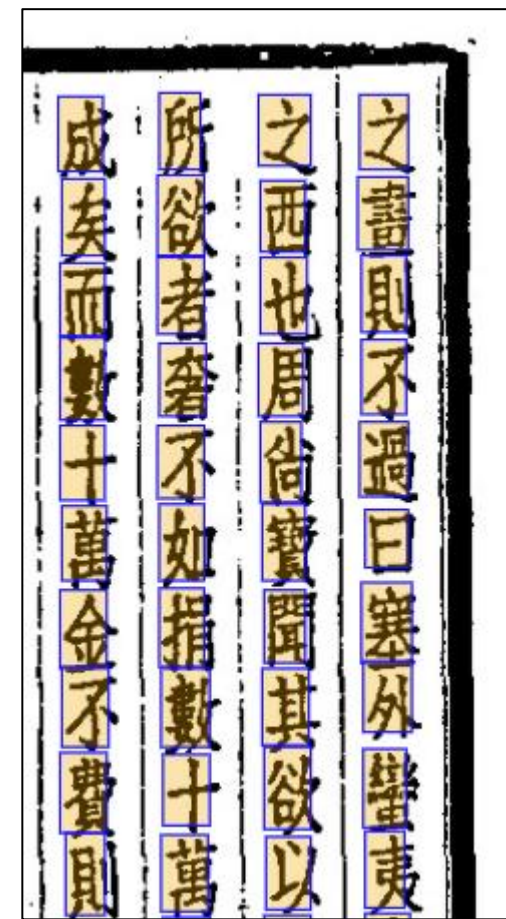 之畫則不過曰塞外蠻夷
之西也周尙寳聞其欲以
所欲者奢不如捐數十萬
成矣而數十萬金不費則